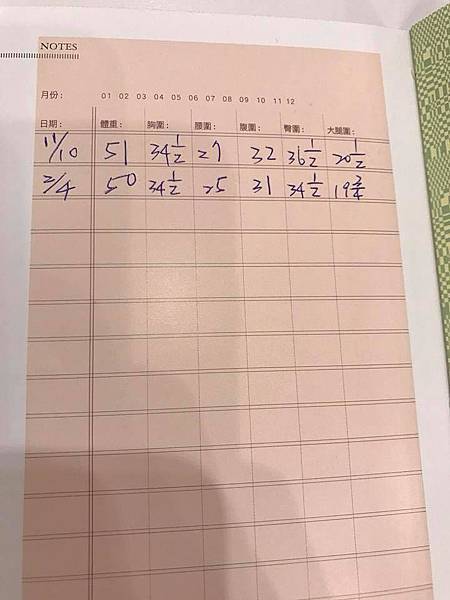 NOTES
月份： 01 02 03 04 05 06 07 08 09 10 11 12
日期： 體重： 胸圍： 腰圍： 腹圍： 臀圍： 大腿圍：
11/10 51 34 1/2 27 32 36 1/2 20 1/2
2/4 50 34 1/2 25 31 34 1/2 19 3/4